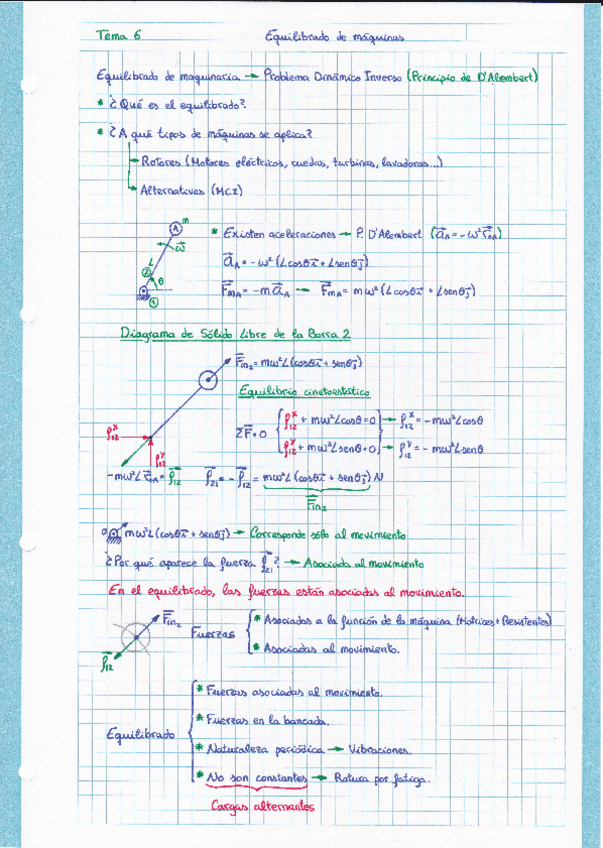 Tema 6 Equilibrado de máquinas
Equilibrado de maquinaria → Problema Dinámico Inverso (Principio de D'Alembert)
* ¿Qué es el equilibrado?
* ¿A qué tipos de máquinas se aplica?
→ Rotores (Motores eléctricos, ruedas, turbinas, lavadoras...)
→ Alternativas (MCI)
A m
ω
L
2
θ
1
* Existen aceleraciones → P. D'Alembert (a⃗_A = -ω² r⃗_OA)
a⃗_A = -ω² (L cosθ i⃗ + L senθ j⃗)
F⃗_mA = -m a⃗_A → F⃗_mA = mω² (L cosθ i⃗ + L senθ j⃗)
Diagrama de Sólido Libre de la Barra 2
F⃗_in2 = mω²L (cosθ i⃗ + senθ j⃗)
Equilibrio cinetoestático
ρ₁₂ˣ
ρ₁₂ʸ
ΣF⃗ = 0 { ρ₁₂ˣ + mω²L cosθ = 0 → ρ₁₂ˣ = -mω²L cosθ
ρ₁₂ʸ + mω²L senθ = 0 → ρ₁₂ʸ = -mω²L senθ
ρ⃗₁₂ ρ⃗₂₁ = -ρ⃗₁₂ = mω²L (cosθ i⃗ + senθ j⃗) N
F⃗_in2
mω²L (cosθ i⃗ + senθ j⃗) → Corresponde sólo al movimiento
¿Por qué aparece la fuerza ρ⃗₂₁? → Asociada al movimiento
En el equilibrado, las fuerzas están asociadas al movimiento.
F⃗_in2
ρ⃗₁₂
Fuerzas { * Asociadas a la función de la máquina (Motrices + Resistentes)
* Asociadas al movimiento.
Equilibrado { * Fuerzas asociadas al movimiento.
* Fuerzas en la bancada.
* Naturaleza periódica → Vibraciones.
* No son constantes → Rotura por fatiga.
Cargas alternantes